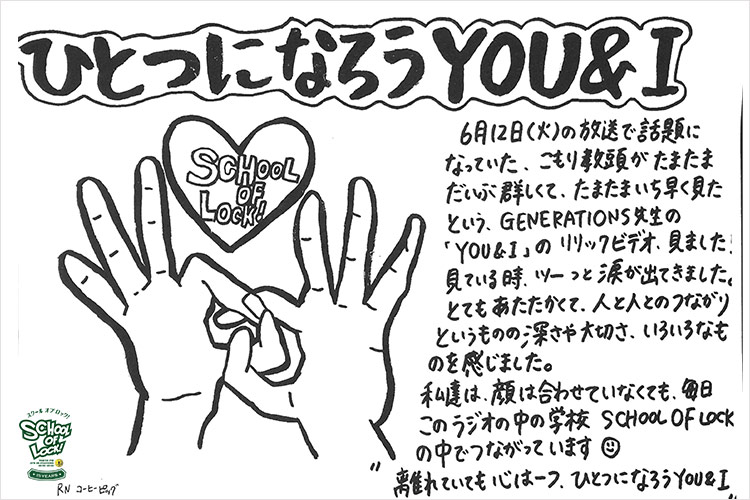 ひとつになろうYOU&I
SCHOOL
OF
LOCK!
6月12日(火)の放送で話題に
なっていた、こもり教頭がたまたま
だいぶ詳しくて、たまたまいち早く見た
という、GENERATIONS先生の
「YOU&I」のリリックビデオ、見ました。
見ている時、ツーっと涙が出てきました。
とてもあたたかくて、人と人とのつながり
というものの深さや大切さ、いろいろなも
のを感じました。
私達は、顔は合わせていなくても、毎日
このラジオの中の学校 SCHOOL OF LOCK
の中でつながっています☺
"離れていても心は一つ、ひとつになろうYOU&I"
スクールオブロック!
SCHOOL
OF
LOCK!
RN コーヒーピッグ